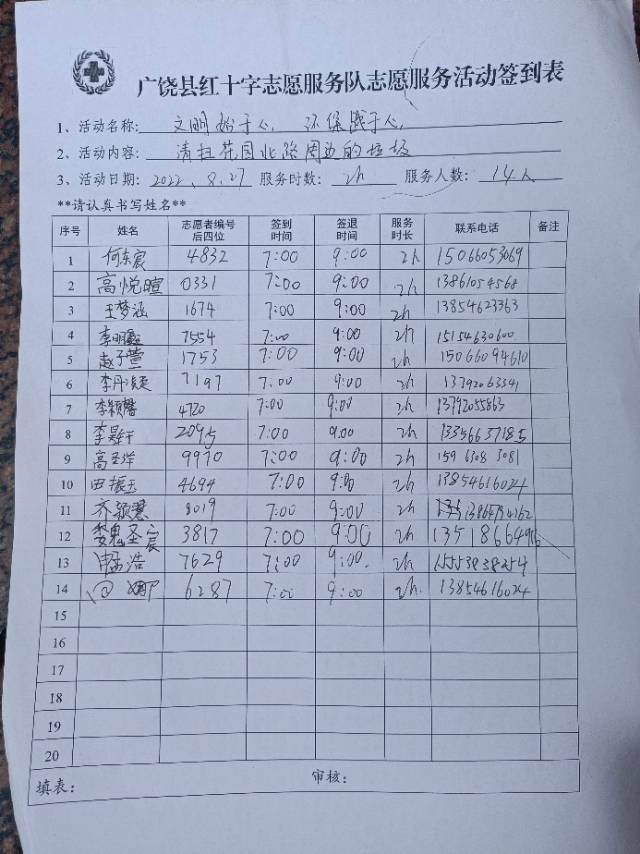 广饶县红十字志愿服务队志愿服务活动签到表
1、活动名称: 文明始于心, 环保践于人,
2、活动内容: 清扫花园北路周边的垃圾
3、活动日期: 2022.8.27 服务时数: 2h 服务人数: 14人
**请认真书写姓名**
序号 姓名 志愿者编号后四位 签到时间 签退时间 服务时长 联系电话 备注
1 何东宸 4832 7:00 9:00 2h 15066053069
2 高悦暄 0331 7:00 9:00 2h 13861054568
3 王梦涵 1674 7:00 9:00 2h 13854623363
4 7554 7:00 9:00 2h 15154630600
5 赵子萱 1753 7:00 9:00 2h 15066094610
6 7197 7:00 9:00 2h 13792063341
7 李颖馨 4720 7:00 9:00 2h 13792055863
8 2095 7:00 9:00 2h 13356637185
9 高圣洋 9970 7:00 9:00 2h 159 6308 3081
10 田振玉 4694 7:00 9:00 2h 13854616024
11 齐颖慧 8019 7:00 9:00 2h
12 3817 7:00 9:00 2h
13 7629 7:00 9:00. 2h 15553838254
14 6287 7:00 9:00 2h. 13854616024
15
16
17
18
19
20
填表: 审核: